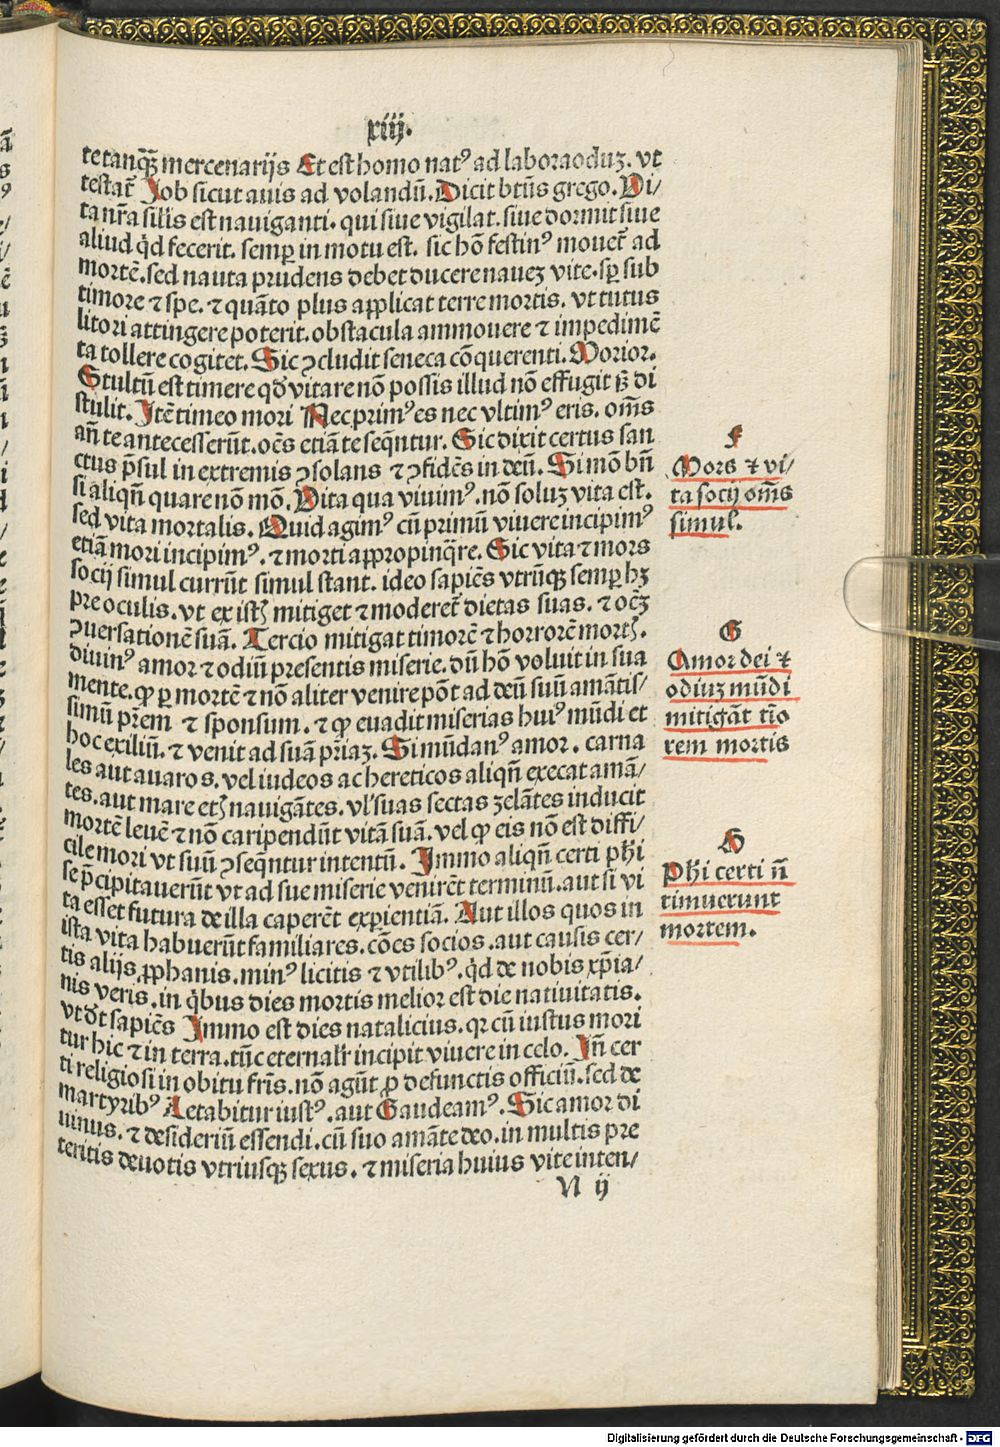 xiij.
te tanqꝫ̃ mercenarijs Et est homo natꝰ ad laboraoduꝫ. vt
testat᷑ Job sicut auis ad volandũ. Dicit btũs grego. Vi/
ta nr̃a silis est nauiganti. qui siue vigilat. siue dormit siue
aliud qd̾ fecerit. semꝑ in motu est. sic hõ festinꝰ mouet᷑ ad
mortẽ. sed nauta prudens debet ducere naueꝫ vite. sꝑ sub
timore ⁊ spe. ⁊ quãto plus applicat terre mortis. vt tutus
litori attingere poterit. obstacula ammouere ⁊ impedimẽ
ta tollere cogitet. Sic ꝯcludit seneca cõquerenti. Morior.
Stultũ est timere qd̾ vitare nõ possis illud nõ effugit qͥ di
stulit. Itẽ timeo mori Nec primꝰ es nec vltimꝰ eris. om̃s
añ te antecesserũt. oẽs etiã te seq̃ntur. Sic dixit certus san
ctus p̃sul in extremis ꝯsolans ⁊ ꝯfidẽs in deũ. Si mõ bñ
si aliqñ quare nõ mõ. Vita qua viuimꝰ. nõ soluꝫ vita est.
sed vita mortalis. Quid agimꝰ cũ primũ viuere incipimꝰ
etiã mori incipimꝰ. ⁊ morti appropinq̃re. Sic vita ⁊ mors
socij simul currũt simul stant. ideo sapiẽs vtrũqꝫ semꝑ hꝫ
pre oculis. vt ex istꝭ mitiget ⁊ moderet᷑ dietas suas. ⁊ oẽꝫ
ꝯuersationẽ suã. Tercio mitigat timorẽ ⁊ horrorẽ mortꝭ.
diuinꝰ amor ⁊ odiũ presentis miserie. dũ hõ voluit in sua
mente. ꝙ ꝑ mortẽ ⁊ nõ aliter venire põt ad deũ suũ amãtis/
simũ pr̃em ⁊ sponsum. ⁊ ꝙ euadit miserias huiꝰ mũdi et
hoc exiliũ. ⁊ venit ad suã pr̃iaꝫ. Si mũdanꝰ amor. carna
les aut auaros. vel iudeos ac hereticos aliqñ execat amã/
tes. aut mare etꝭ nauigãtes. vl̾ suas sectas ꝫelãtes inducit
mortẽ leuẽ ⁊ nõ caripendũt vitã suã. vel ꝙ eis nõ est diffi/
cile mori vt suũ ꝯseq̃ntur intentũ. Immo aliqñ certi phi
se p̃cipitauerũt vt ad sue miserie venirẽt terminũ. aut si vi
ta esset futura de illa caperẽt exꝑientiã. Aut illos quos in
ista vita habuerũt familiares. cões socios. aut causis cer/
tis alijs ꝓphanis. minꝰ licitis ⁊ vtilibꝰ. qd̾ de nobis xp̃ia/
nis veris. in qͥbus dies mortis melior est die natiuitatis.
vt dt̾ sapiẽs Immo est dies natalicius. qꝛ cũ iustus mori
tur hic ⁊ in terra. tũc eternalr̃ incipit viuere in celo. Iñ cer
ti religiosi in obitu fr̃is. nõ agũt ꝓ defunctis officiũ. sed de
martyribꝰ Letabitur iustꝰ. aut Gaudeamꝰ. Sic amor di
uinus. ⁊ desideriũ essendi. cũ suo amãte deo. in multis pre
teritis deuotis vtriusqꝫ sexus. ⁊ miseria huius vite inten/
N ij
F
Mors ⁊ vi/
ta socij om̃s
simul.
G
Amor dei ⁊
odiuꝫ mũdi
mitigãt tĩo
rem mortis
H
Phi certi ñ
timuerunt
mortem.
Digitalisierung gefördert durch die Deutsche Forschungsgemeinschaft - DFG